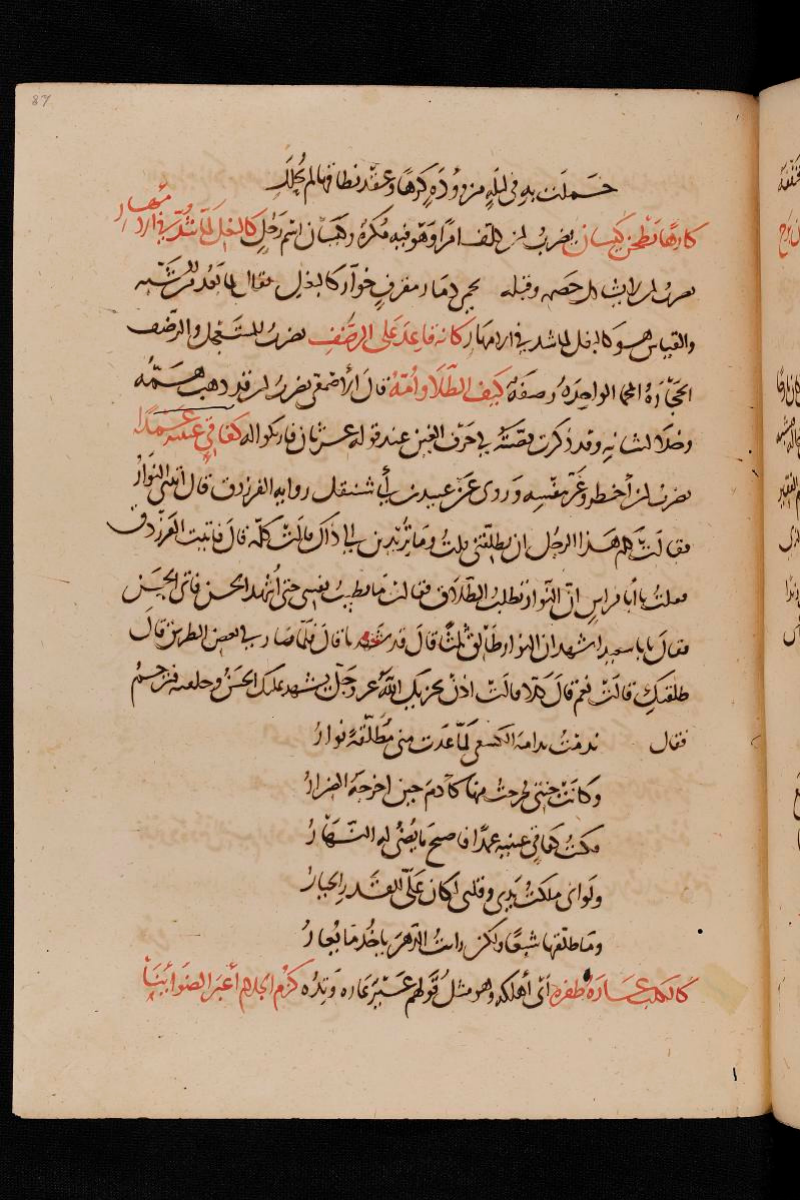 87
حملت به في ليلة مزؤودة كرها وعقد نطاقها لم يحلل
كارها يطحن كيسان يضرب لمن كلف امرا وهو فيه مكره وكيسان اسم رجل كالبغل لما شد في الامهار
يضرب لمن وقبله يحمي ذمار مقرف خوار كالبغل يقال
والقياس هو كالبغل لما شد في الامهار كانه قاعد على الرضف يضرب للمستعجل والرضف
الحجارة المحماة الواحدة رضفة كيف الطلا وامه قال الاصمعي يضرب لمن قد ذهب همه
وخلا لشانه وقد ذكرت قصته في حرف الغين عند قوله غرثان فاربكوا له كفاقئ عينه عمدا
يضرب لمن اخطر وغرر بنفسه وروى عن عبيد بن ابي شنقل راوية الفرزدق قال اتتني النوار
فقالت كلم هذا الرجل ان يطلقني قلت وما تريدين الى ذاك قالت كلمه قال فاتيت الفرزدق
فقلت يا ابا فراس ان النوار تطلب الطلاق فقال ما تطيب نفسي حتى اشهد الحسن فاتى الحسن
فقال يا با سعيد اشهد ان النوار طالق ثلثا قال قد شهدنا قال فلما صار في بعض الطريق قال
طلقتك قالت نعم قال كلا قالت اذن يخزيك الله عز وجل يشهد عليك الحسن وحلقته فترجم
فقال ندمت ندامة الكسعي لما غدت مني مطلقة نوار
وكانت جنتي فخرجت منها كآدم حين اخرجه الضرار
فكنت كفاقئ عينيه عمدا فاصبح ما يضئ له النهار
ولو اني ملكت يدي وقلبي لكان علي للقدر الخيار
وما طلقتها شبعا ولكن رايت الدهر ياخذ ما يعار
كالكلب عاره ظفره اي اهلكه وهو مثل قولهم عير عاره وتده كزم الجلام اعبر الضوائنا